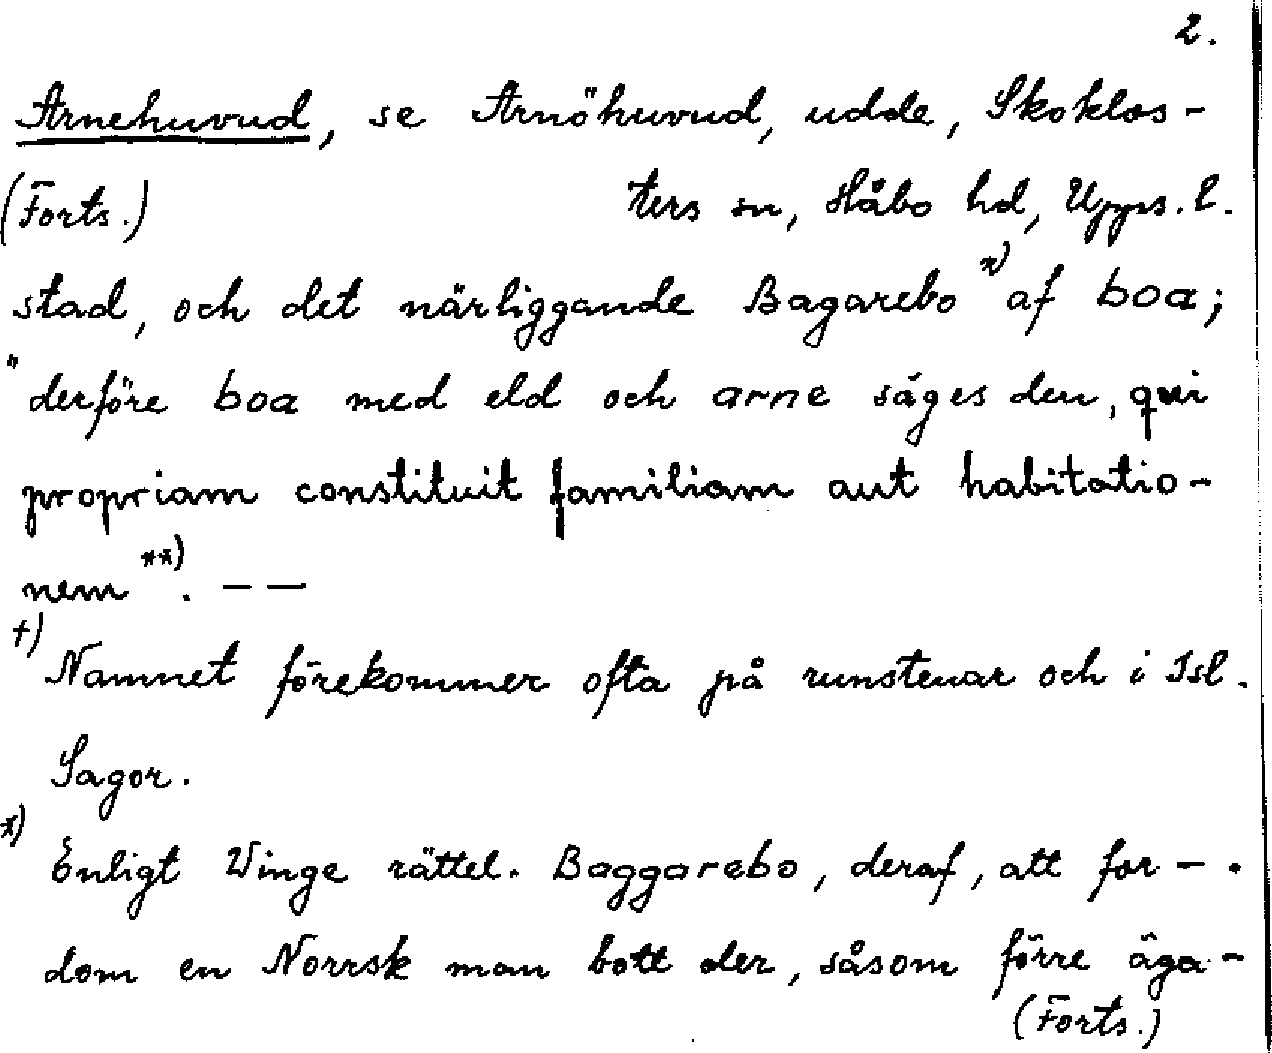 2.
Arnehuvud, se Arnöhuvud, udde, Skoklos-
(Forts.) ters sn, Håbo hd, Upps. l.
stad, och det närliggande Bagarebo x) af boa;
"derföre boa med eld och arne säges den, qui
propriam constituit familiam aut habitatio-
nem **). — —
†) Namnet förekommer ofta på runstenar och i Isl.
Sagor.
x) Enligt Winge rättel. Baggarebo, deraf, att for-
dom en Norrsk man bott der, såsom förre äga-
(Forts.)